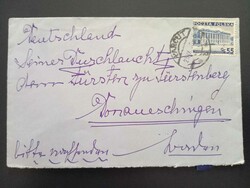 POCZTA POLSKA
55
Deutschland
Seiner Durchlaucht
dem Fürsten zu Fürstenberg
Donaueschingen
bitte nachsenden